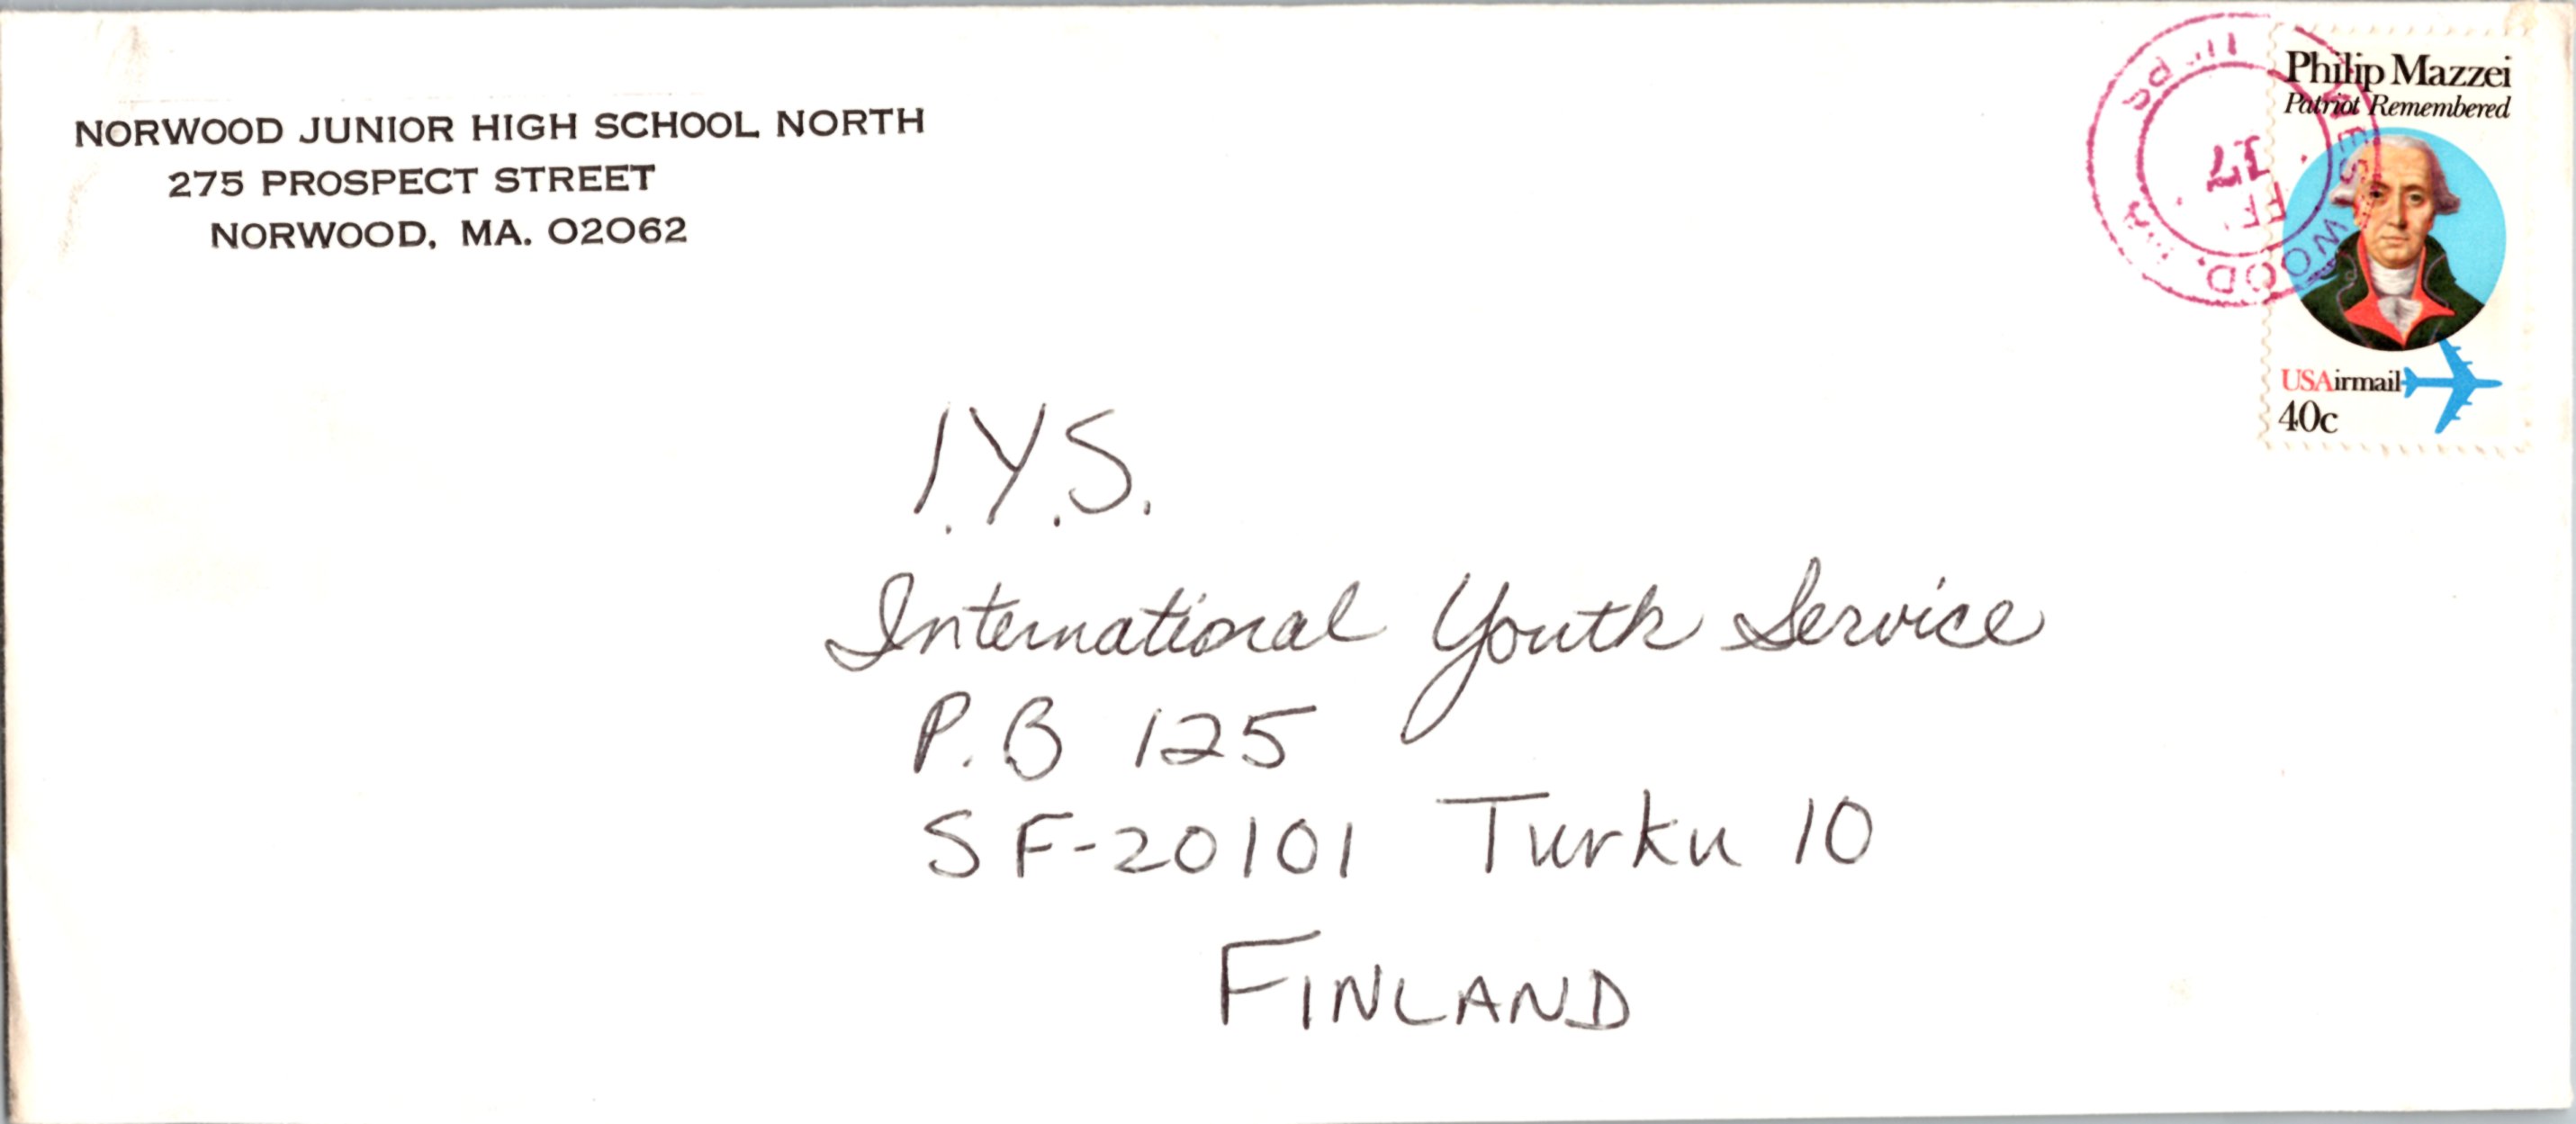 NORWOOD JUNIOR HIGH SCHOOL NORTH
275 PROSPECT STREET
NORWOOD, MA. 02062
Philip Mazzei
Patriot Remembered
USAirmail
40c
I.Y.S.
International Youth Service
P.B 125
SF-20101 Turku 10
FINLAND